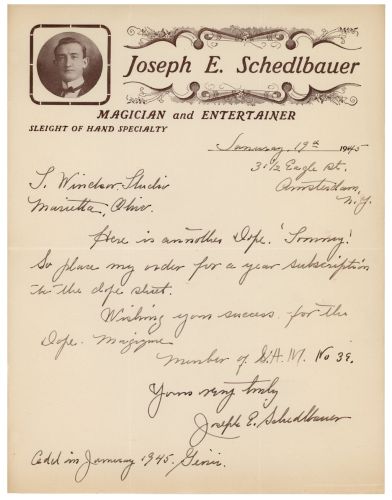 Joseph E. Schedlbauer
MAGICIAN and ENTERTAINER
SLEIGHT OF HAND SPECIALTY
January 19th 1945
31½ Eagle St.
Amsterdam,
N.Y.
T. Windsor Studio
Marietta, Ohio.
Here is another Dope. "Tommy".
So place my order for a year subscription
to the dope sheet.
Wishing your success for the
Dope. Magizine
Member of S.A.M. No 39.
Yours very truly
Joseph E. Schedlbauer
in January 1945.